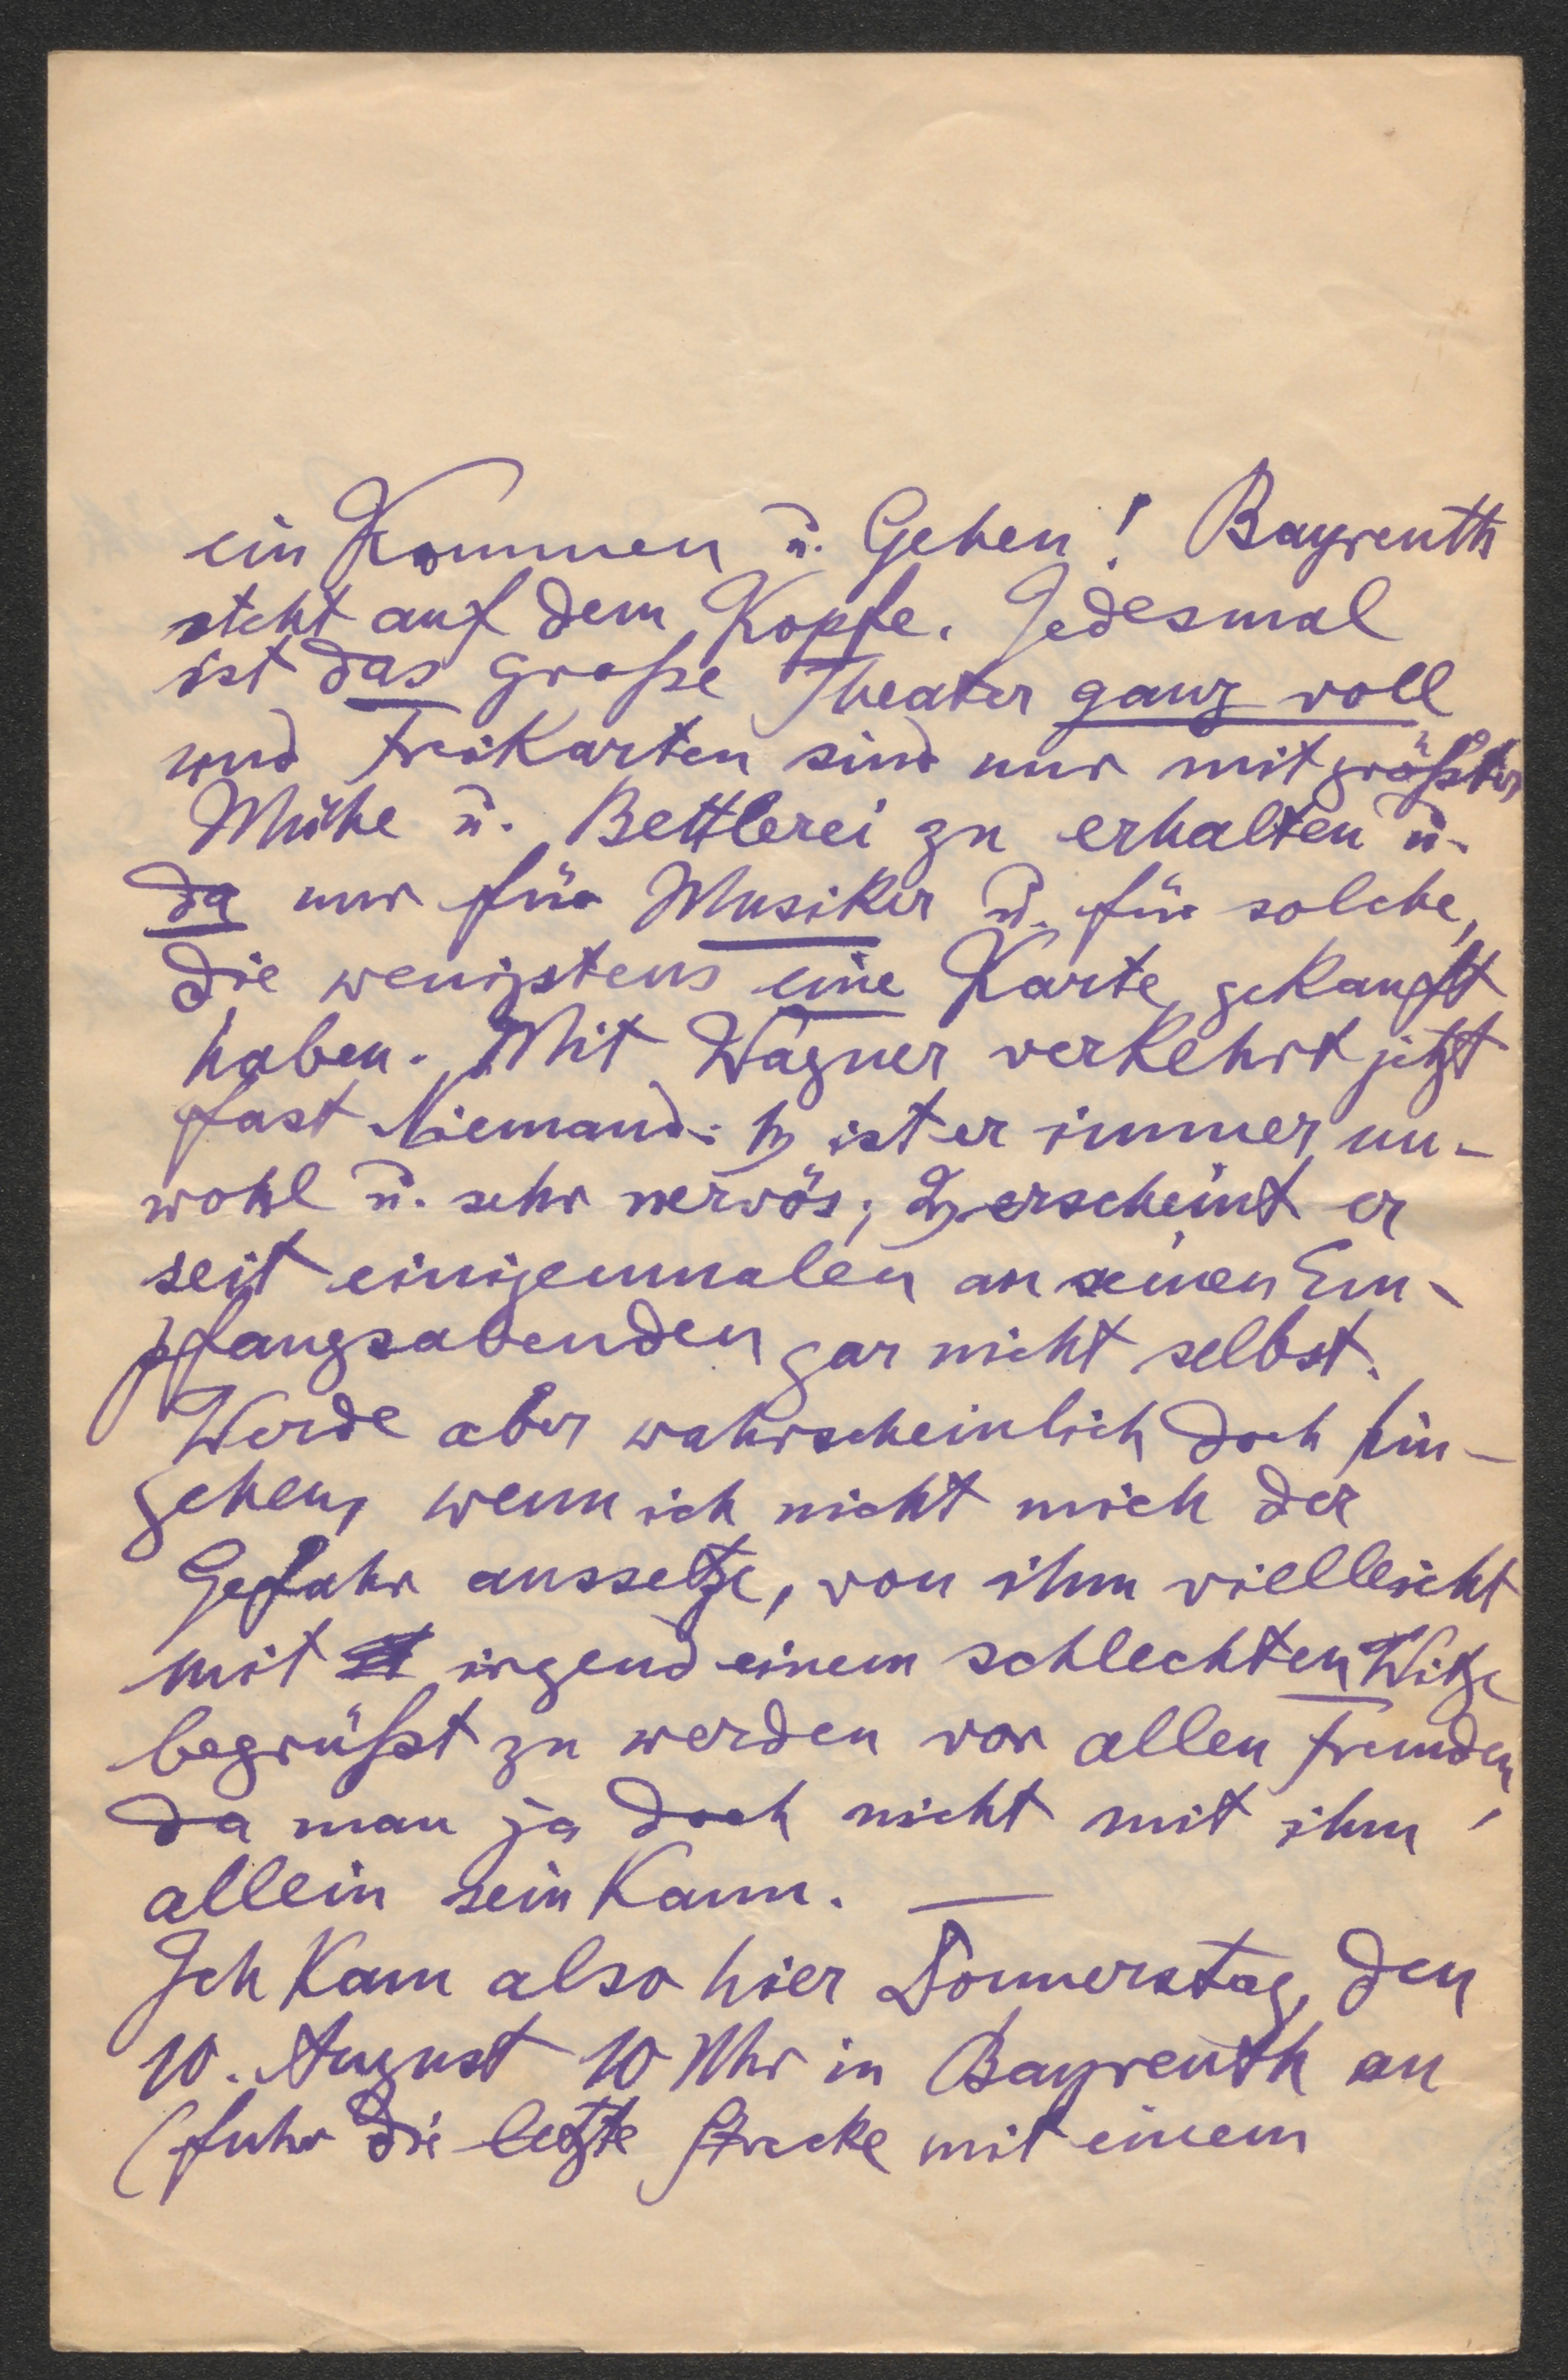 ein Kommen u. Gehen! Bayreuth
steht auf dem Kopfe. Jedesmal
ist das große Theater ganz voll
und Freikarten sind nur mit größter
Mühe u. Bettlerei zu erhalten u.
da nur für Musiker u. für solche,
die wenigstens eine Karte gekauft
haben. Mit Wagner verkehrt jetzt
fast Niemand. 1) ist er immer un-
wohl u. sehr nervös; 2) erscheint er
seit einigenmalen an seinen Em-
pfangsabenden gar nicht selbst.
Werde aber wahrscheinlich doch hin-
gehen, wenn ich nicht mich der
Gefahr aussetze, von ihm vielleicht
mit irgend einem schlechten Witze
begrüßt zu werden vor allen Fremden,
da man ja doch nicht mit ihm
allein sein kann. —
Ich kam also hier Donnerstag, den
10. August 10 Uhr in Bayreuth an
(fuhr die letzte Strecke mit einem